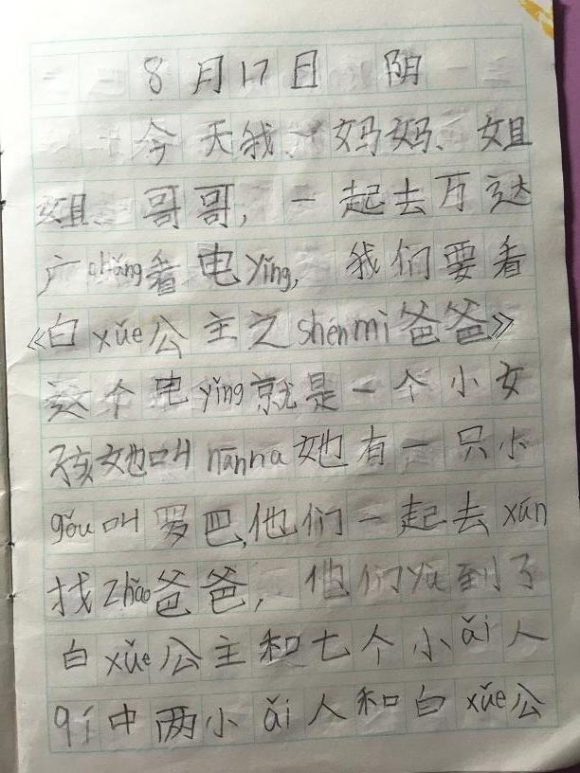 8月17日 阴
今天我、妈妈、姐
姐、哥哥,一起去万达
广chǎng看电yǐng,我们要看
《白xǔe公主之shénmì爸爸》
这个电yǐng就是一个小女
孩她叫nānna她有一只小
gǒu叫罗巴,他们一起去xún
找zhǎo爸爸,他们yù到了
白xǔe公主和七个小ǎi人
qí中两小ǎi人和白xǔe公